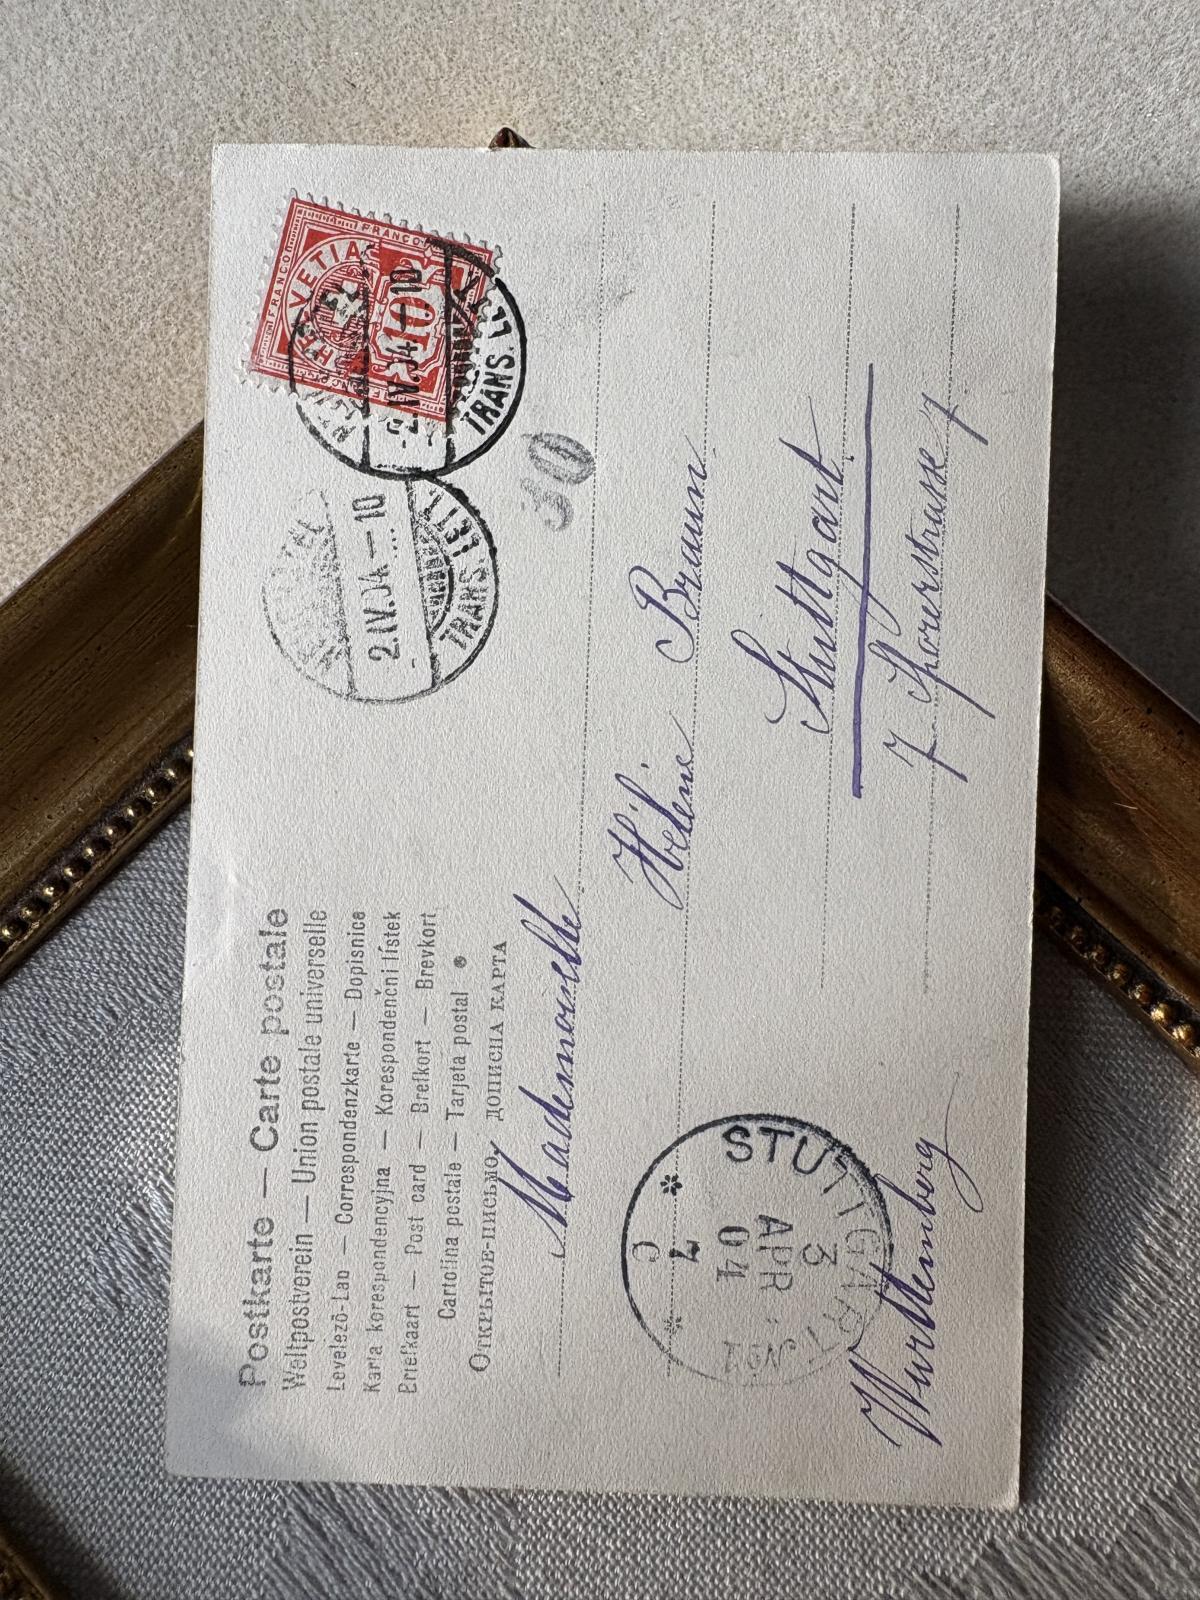 Postkarte — Carte postale
Weltpostverein — Union postale universelle
Levelező-Lap — Correspondenzkarte — Dopisnice
Karta korespondencyjna — Korespondenční lístek
Briefkaart — Post card — Brefkort — Brevkort
Cartolina postale — Tarjeta postal
Открытое письмо, ДОПИСНА КАРТА
FRANCO FRANCO
HELVETIA
10
2.IV.04.–10
TRANS. LETT.
2.IV.04.–10
TRANS. LETT.
30
Mademoiselle
Hélène Braun
Stuttgart
7 Sporerstrasse 7.
Württemberg
STUTTGART
3
APR
04
7
C